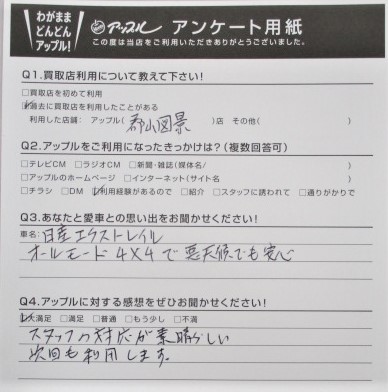 わがまま
どんどん
アップル！
アップル アンケート用紙
この度は当店をご利用いただきありがとうございました。
Q1.買取店利用について教えて下さい！
□買取店を初めて利用
☑過去に買取店を利用したことがある
利用した店舗： アップル（ 郡山図景 ）店 その他（ ）
Q2.アップルをご利用になったきっかけは？（複数回答可）
□テレビCM □ラジオCM □新聞・雑誌（媒体名/ ）
□アップルのホームページ □インターネット（サイト名 ）
□チラシ □DM ☑利用経験があるので □紹介 □スタッフに誘われて □通りがかりで
Q3.あなたと愛車との思い出をお聞かせください！
車名：日産エクストレイル
オールモード4X4で悪天候でも安心
Q4.アップルに対する感想をぜひお聞かせください！
☑大満足 □満足 □普通 □もう少し □不満
スタッフの対応が素晴らしい
次回も利用します。